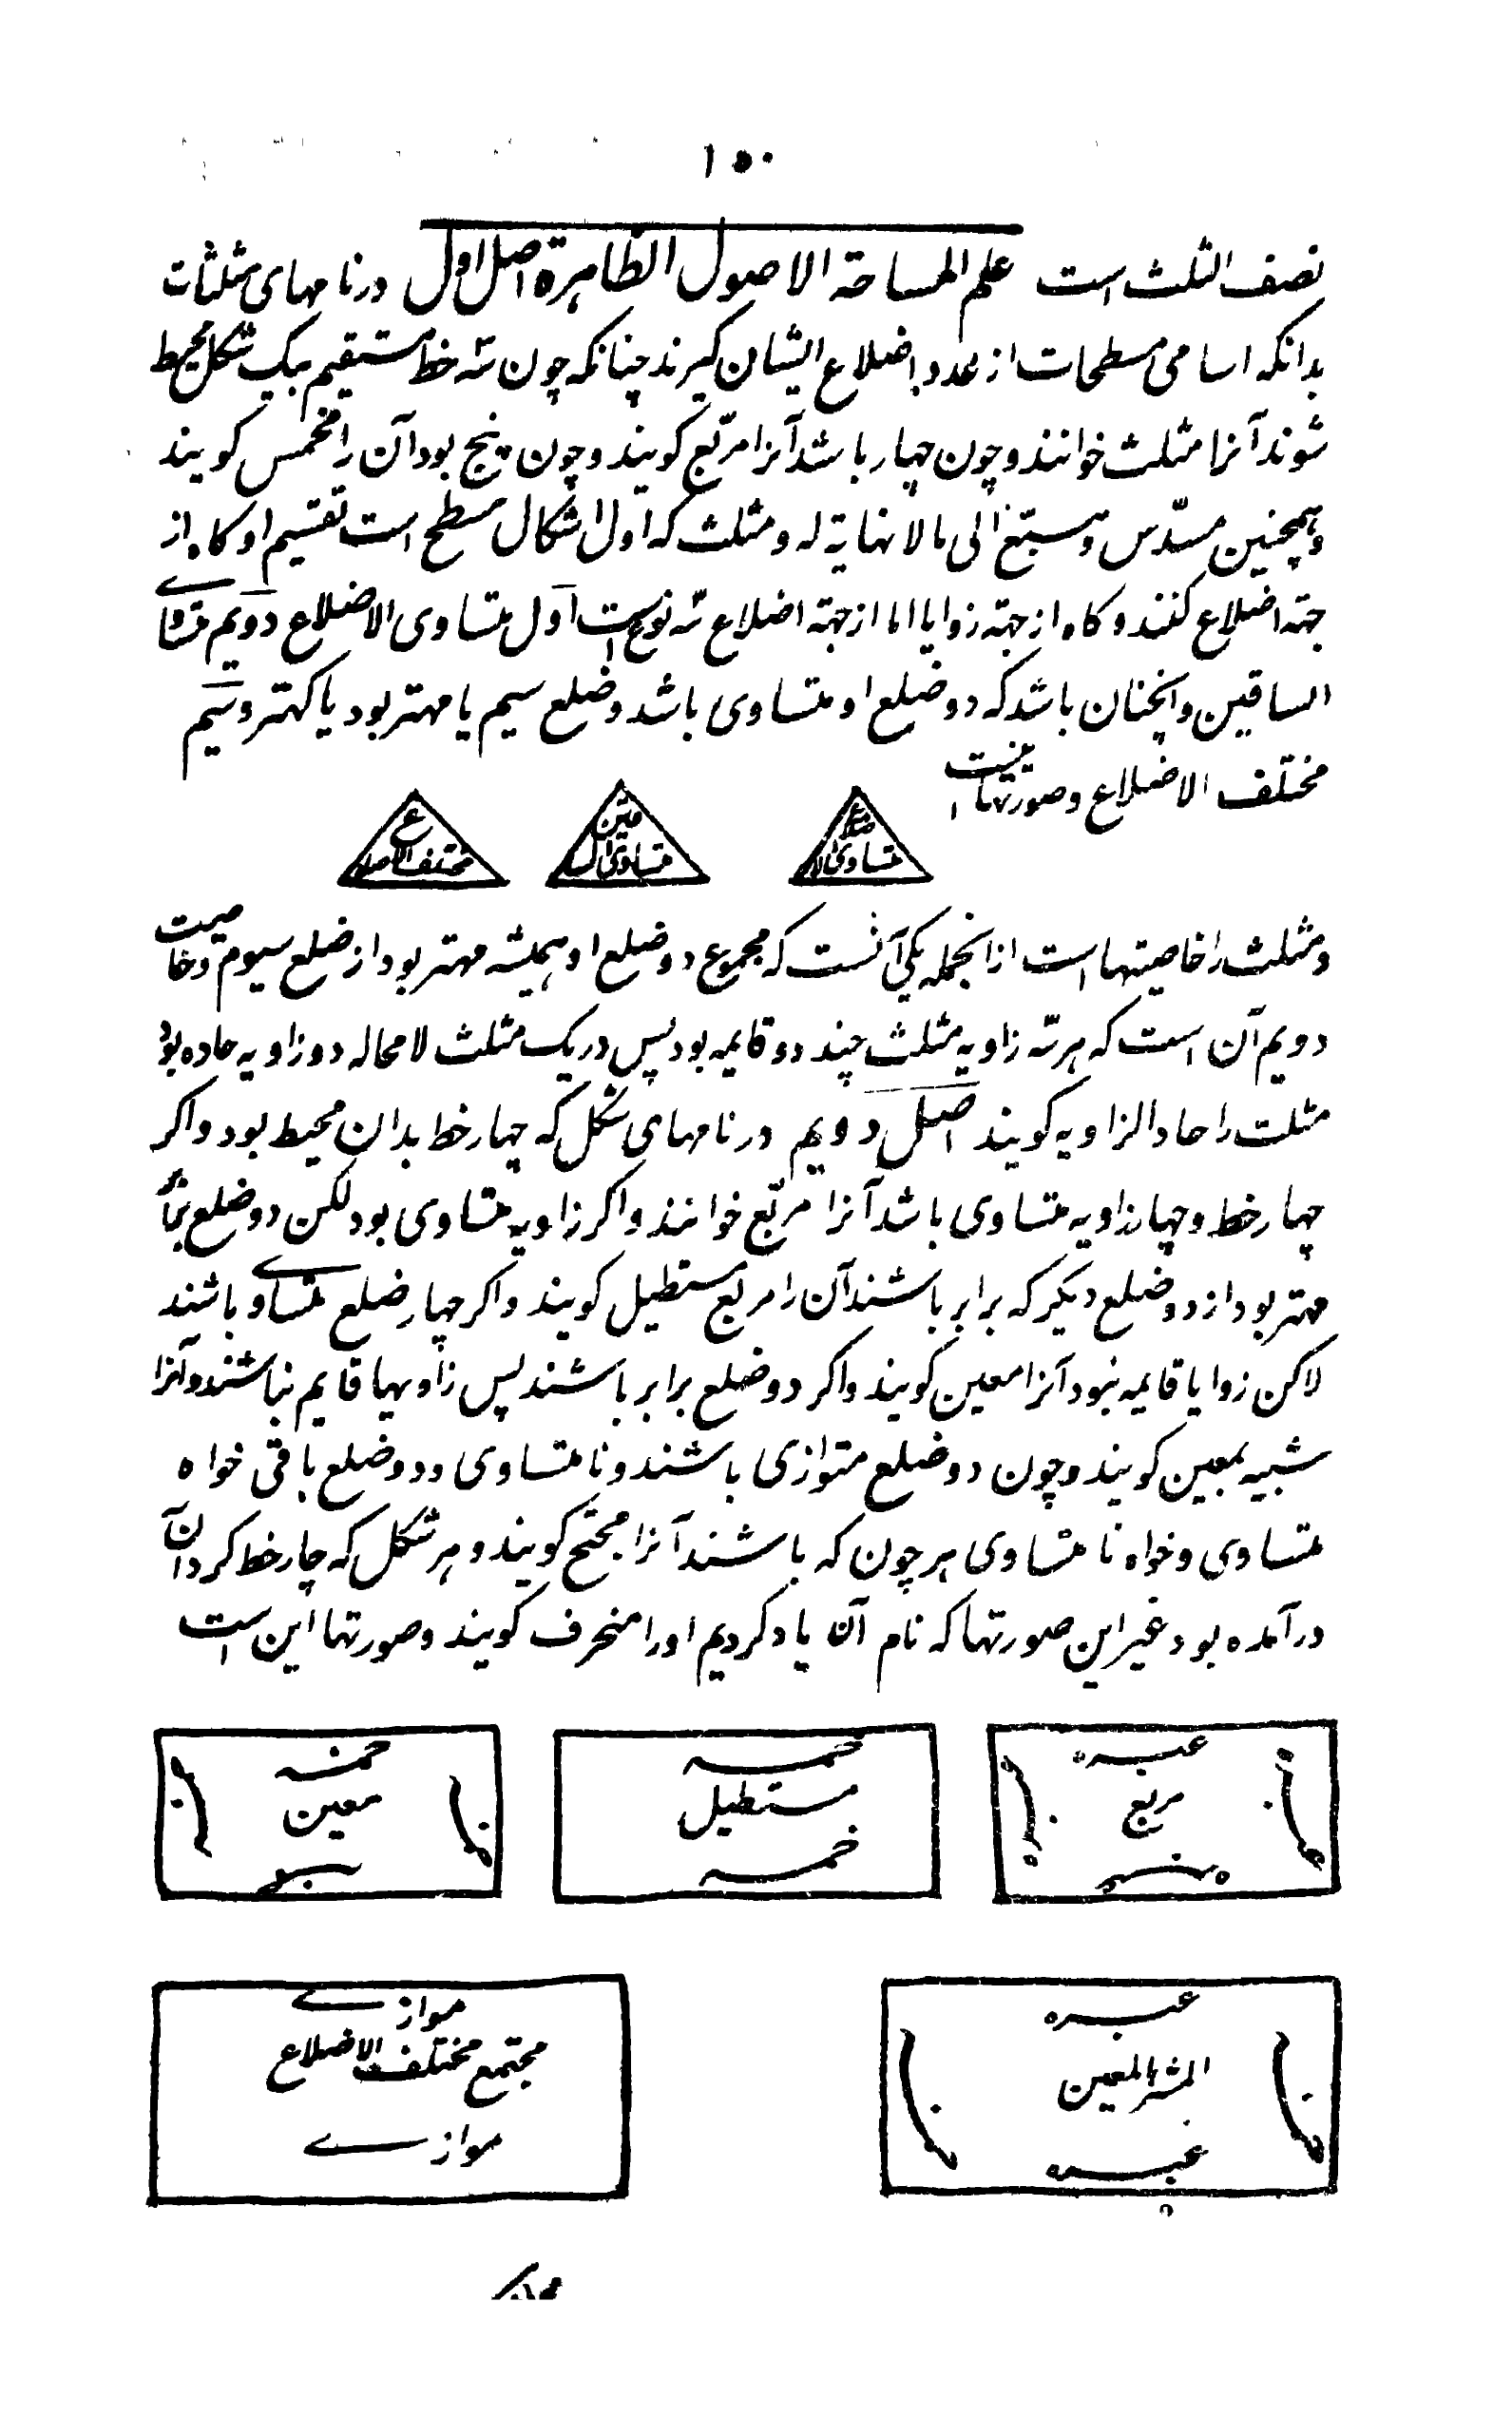 ۱۵۰
نصف الثلث است علم المساحة الاصول الظاهرة اصل اول در نامهای مثلثات
بدانکه اسامی مسطحات از عدد اضلاع ایشان کیرند چنانکه چون سه خط مستقیم بیک شکل محیط
شوند آنرا مثلث خوانند و چون چهار باشد آنرا مربّع کویند و چون پنج بود آن را مخمس کویند
و همچنین مسدّس و مسبّع الی ما لا نهایة له و مثلث که اول اشکال مسطح است تقسیم او کاه از
جهة اضلاع کنند و کاه از جهة زوایا اما از جهة اضلاع سه نوعست اول متساوی الاضلاع دویم متساوی
الساقین و آنچنان باشد که دو ضلع او متساوی باشد و ضلع سیم یا مهتر بود یا کهتر و سیم
مختلف الاضلاع و صورتها اینست
متساوی الاضلاع
متساوی الساقین
مختلف الاضلاع
و مثلث را خاصیتها است از انجمله یکی آنست که مجموع دو ضلع او همیشه مهتر بود از ضلع سیوم و خاصیت
دویم آن است که هر سه زاویه مثلث چند دو قایمه بود پس در یک مثلث لا محاله دو زاویه حاده بود
مثلث را حاد الزاویه کویند اصل دویم در نامهای شکل که چهار خط بدان محیط بود و اکر
چهار خط و چهار زاویه متساوی باشد آنرا مربّع خوانند و اکر زاویه متساوی بود لکن دو ضلع
مهتر بود از دو ضلع دیکر که برابر باشند آن را مربع مستطیل کویند و اکر چهار ضلع متساوی باشند
لاکن زوایا قایمه نبود آنرا معین کویند و اکر دو ضلع برابر باشند پس زاویها قایم نباشند و آنرا
شبیه بمعین کویند و چون دو ضلع متوازی باشند و نا متساوی و دو ضلع باقی خواه
متساوی و خواه نا متساوی هر چون که باشند آنرا کویند و هر شکل که چار خط کرد آن
در آمده بود غیر این صورتها که نام آن یاد کردیم اورا منحرف کویند و صورتها این است
مربع
خمسه
مستطیل
خمسه
خمسه
معین
موازے
مجتمع مختلف الاضلاع
موازے